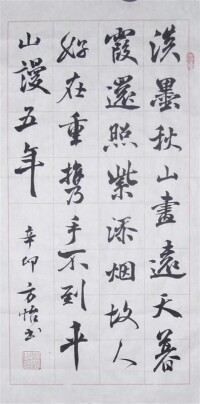 淡墨秋山畫遠天暮
霞還照紫添烟故人
好在重携手不到平
山謾五年
辛卯方怡书